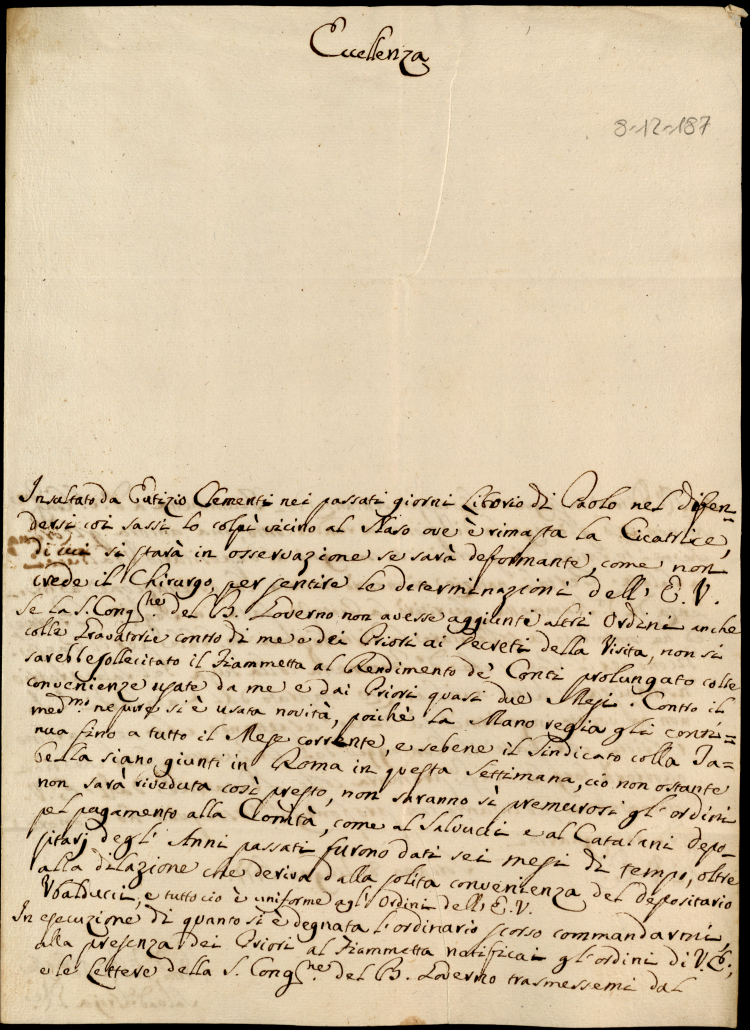 Eccellenza
8-12-187
Insultato da Eutizio Clementi nei passati giorni Liborio di Paolo nel difen=
dersi coi sassi lo colpì vicino al Naso ove è rimasta la Cicatrice,
di cui si starà in osservazione se sarà deformante, come non
crede il Chirurgo, per sentire le determinazioni dell' E. V.
Se la S. Congne del B. Governo non avesse aggiunti altri Ordini anche
colle Gravatorie contro di me e dei Priori ai Decreti della Visita, non si
sarebbe sollecitato il Fiammetta al Rendimento de' Conti prolungato colle
convenienze usate da me e dai Priori quasi due Mesi. Contro il
medmo nepure si è usata novità, poichè la Mano regia gli conti=
nua fino a tutto il Mese corrente, e sebene il Sindicato colla Ta=
bella siano giunti in Roma in questa Settimana, ciò non ostante
non sarà riveduta così presto, non saranno sì premurosi gl'ordini
pel pagamento alla Comità, come al Salvucci e al Catalani depo=
sitarj degl' Anni passati furono dati sei mesi di tempo, oltre
alla dilazione che deriva dalla solita convenienza del depositario
Ubalducci, e tutto ciò è uniforme agl'Ordini dell' E. V.
In esecuzione di quanto si è degnata l'ordinario scorso commandarmi,
alla presenza dei Priori al Fiammetta notificai gl'ordini di V. E.,
e le Lettere della S. Congne del B. Governo trasmessemi dal